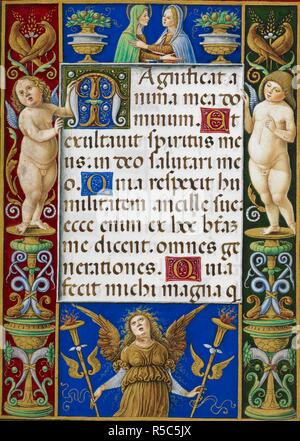 MAgnificat a
nima mea do
minum. Et
exultauit spiritus me
us. in deo salutari me
o. Quia respexit hu
militatem ancille sue.
ecce enim ex hoc btãz
me dicent. omnes ge
nerationes. Quia
fecit michi magna q
alamy
Image ID: R5C5JX
www.alamy.com